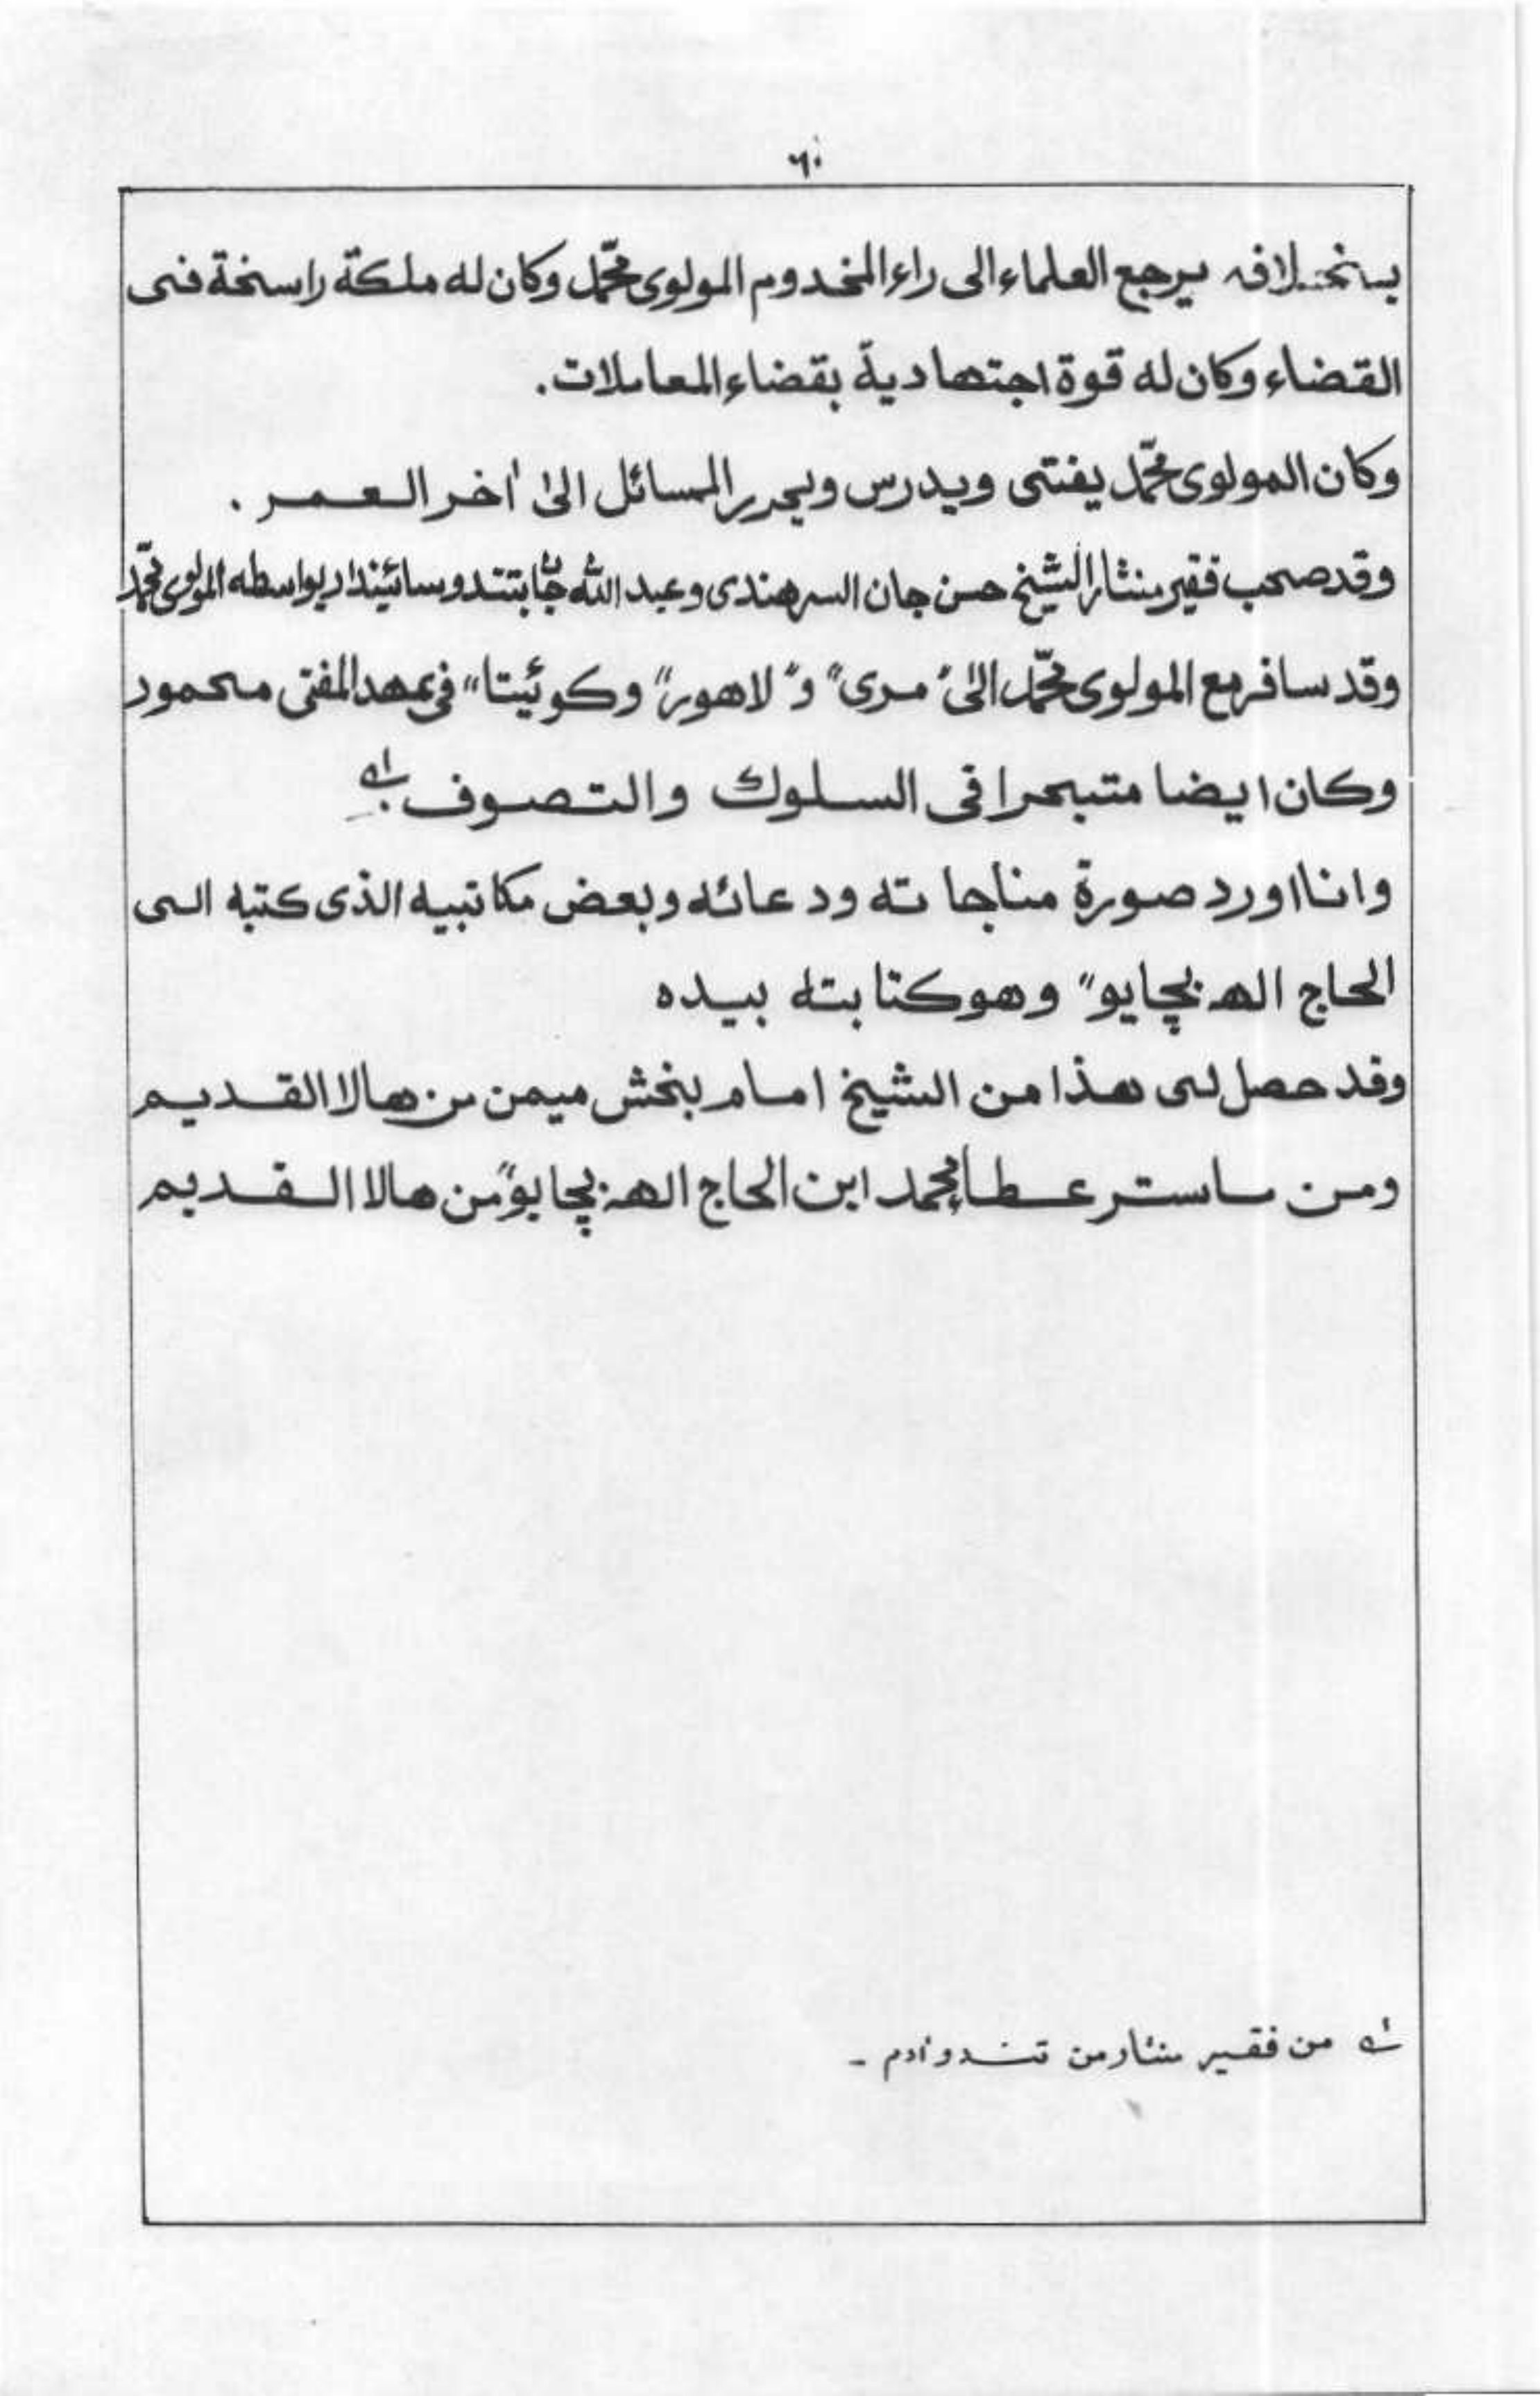 ٦٠
يرجع العلماء الى راء المخدوم المولوى محمّد وكان له ملكة راسخة فى
القضاء وكان له قوة اجتهادية بقضاء المعاملات.
وكان المولوى محمّد يفتى ويدرس ويحرر المسائل الىٰ اٰخر العمر .
وقد صحب فقير منثار الشيخ حسن جان السرهندى وعبد الله بتندو سائينداد بواسطه المولوى محمّد
وقد سافر مع المولوى محمّد الىٰ "مرى" و"لاهور" وكوئيتا" فى عهد المفتى محمود
وكان ايضا متبحرا فى السلوك والتصوف ؂۱
وانا اورد صورة مناجا ته ودعائه وبعض مكاتبيه الذى كتبه الى
الحاج اله بچايو" وهو كتابته بيده
وقد حصل لى هذا من الشيخ امام بخش ميمن من هالا القديم
ومن ماستر عطا محمد ابن الحاج اله بچايو" من هالا القديم
؂۱ من فقير منثار من تندو اٰدم -